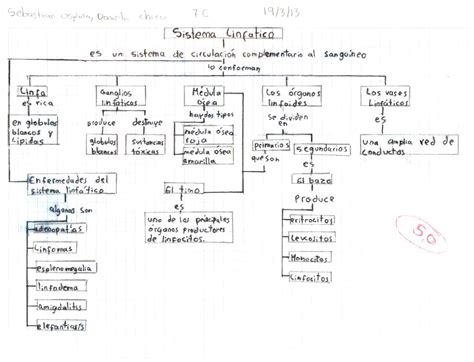 Sebastian Ospina, Daniela 7C 19/3/13
Sistema Linfatico
es un sistema de circulación complementario al sanguineo
lo conforman
Linfa
es rica
en globulos
blancos y
Lipidos
Ganglios
linfáticos
produce
globulos
blancos
destruye
sustancias
tóxicas
Médula
osea
hay dos tipos
médula ósea
roja
médula ósea
amarilla
Los órganos
linfoides
se dividen
en
primarios
que son
segundarios
es
El bazo
produce
eritrocitos
Leucositos
Monocitos
Linfocitos
Los vasos
Linfáticos
es
una amplia red de
conductos
Enfermedades del
sistema linfático
algunas son
adenopatías
Linfomas
esplenomegalia
linfadema
amigdalitis
elefantiasis
El timo
es
uno de los principales
órganos productores
de linfocitos.
5,0